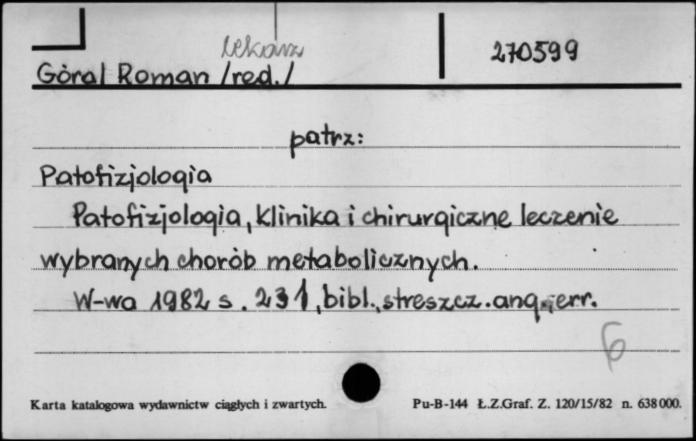 lekarz
270599
Góral Roman /red./
patrz:
Patofizjologia
Patofizjologia, klinika i chirurgiczne leczenie
wybranych chorób metabolicznych.
W-wa 1982 s. 231, bibl., streszcz. ang., err.
6
Karta katalogowa wydawnictw ciągłych i zwartych. Pu-B-144 Ł.Z.Graf. Z. 120/15/82 n. 638000.